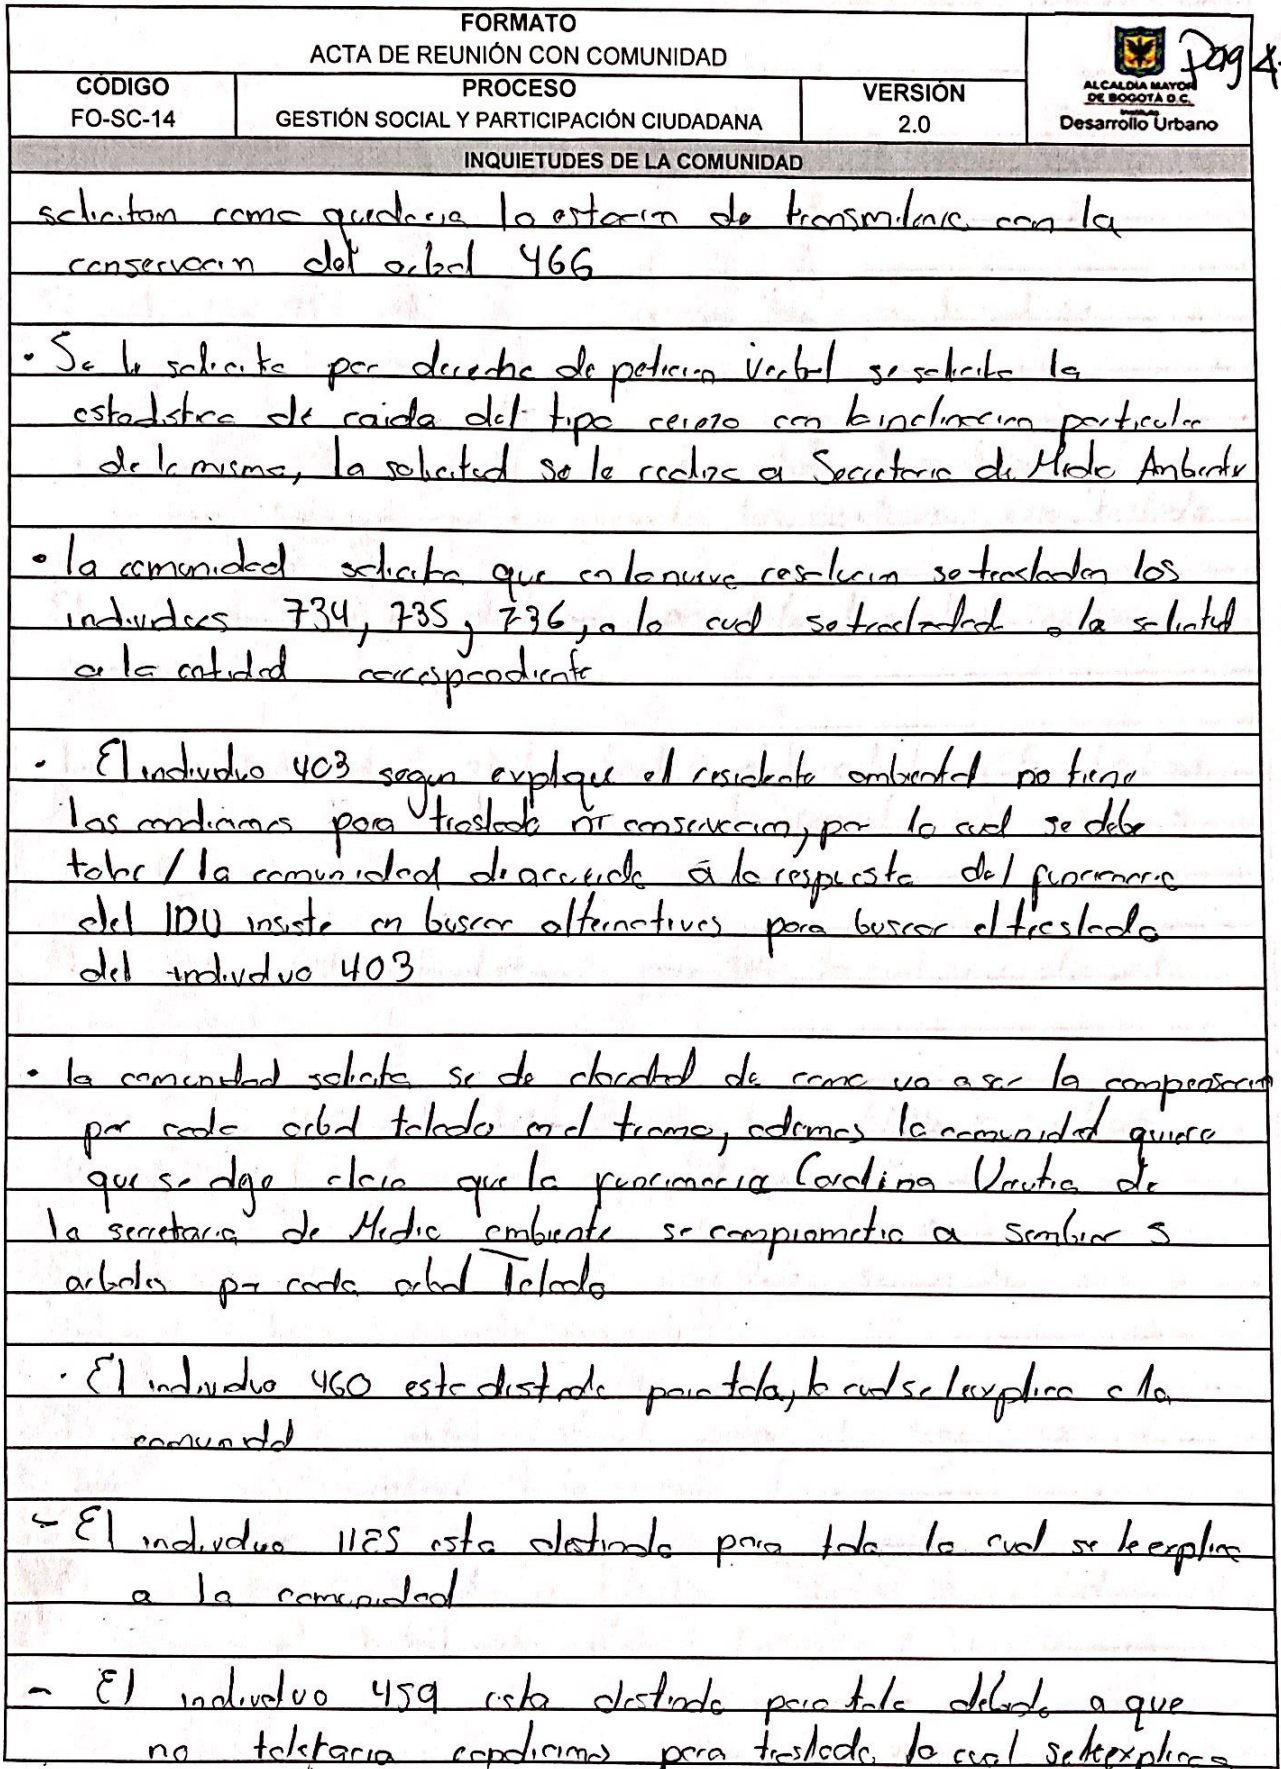 FORMATO
ACTA DE REUNIÓN CON COMUNIDAD
Pag 4.
CÓDIGO
FO-SC-14
PROCESO
GESTIÓN SOCIAL Y PARTICIPACIÓN CIUDADANA
VERSIÓN
2.0
ALCALDÍA MAYOR
DE BOGOTÁ D.C.
Instituto
Desarrollo Urbano
INQUIETUDES DE LA COMUNIDAD
solicitan como quedaria la estacion de transmilenio con la
conservacion del arbol 466
• Se le solicita por derecho de peticion verbal se solicita la
estadistica de caida del tipo cerezo con la inclinacion particular
de la misma, la solicitud se le realiza a Secretaria de Medio Ambiente
• la comunidad solicita que en la nueva resolucion se trasladen los
individuos 734, 735, 736, a lo cual la solicitud
a la entidad correspondiente
• El individuo 403 segun explique el residente ambiental no tiene
las condiciones para traslado ni conservacion, por lo cual se debe
talar / la comunidad de acuerdo a la respuesta del funcionario
del IDU insiste en buscar alternativas para buscar el traslado
del individuo 403
• la comunidad solicita se de claridad de como va a ser la compensacion
por cada arbol talado en el tramo, ademas la comunidad quiere
que se claro que la funcionaria Carolina de
la secretaria de Medio ambiente se comprometio a sembrar 5
arboles por cada arbol Talado
• El individuo 460 esta destinado para tala, lo cual se le explica a la
comunidad
- El individuo esta destinado para tala lo cual se le explica
a la comunidad
- El individuo 459 esta destinado para tala debido a que
no condiciones para traslado, lo cual se le explica a